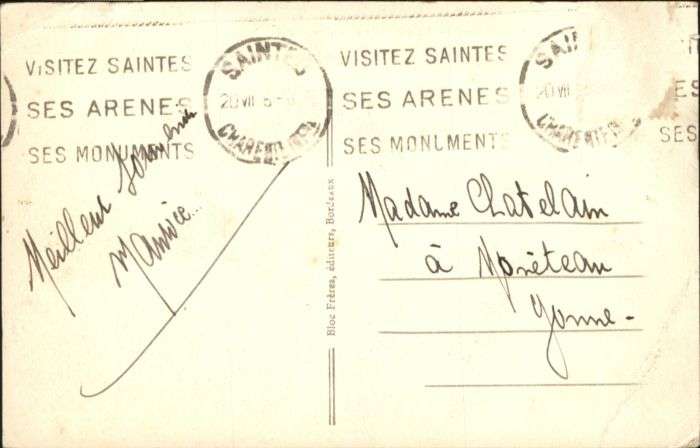 VISITEZ SAINTES
SES ARENES
SES MONUMENTS
SAINTES
20 VII
VISITEZ SAINTES
SES ARENES
SES MONUMENTS
SAIN
20 VII
ES
SES
Meilleur Souvenir
Maurice
Bloc Frères, éditeurs, Bordeaux
Madame Chatelain
à Monéteau
Yonne -